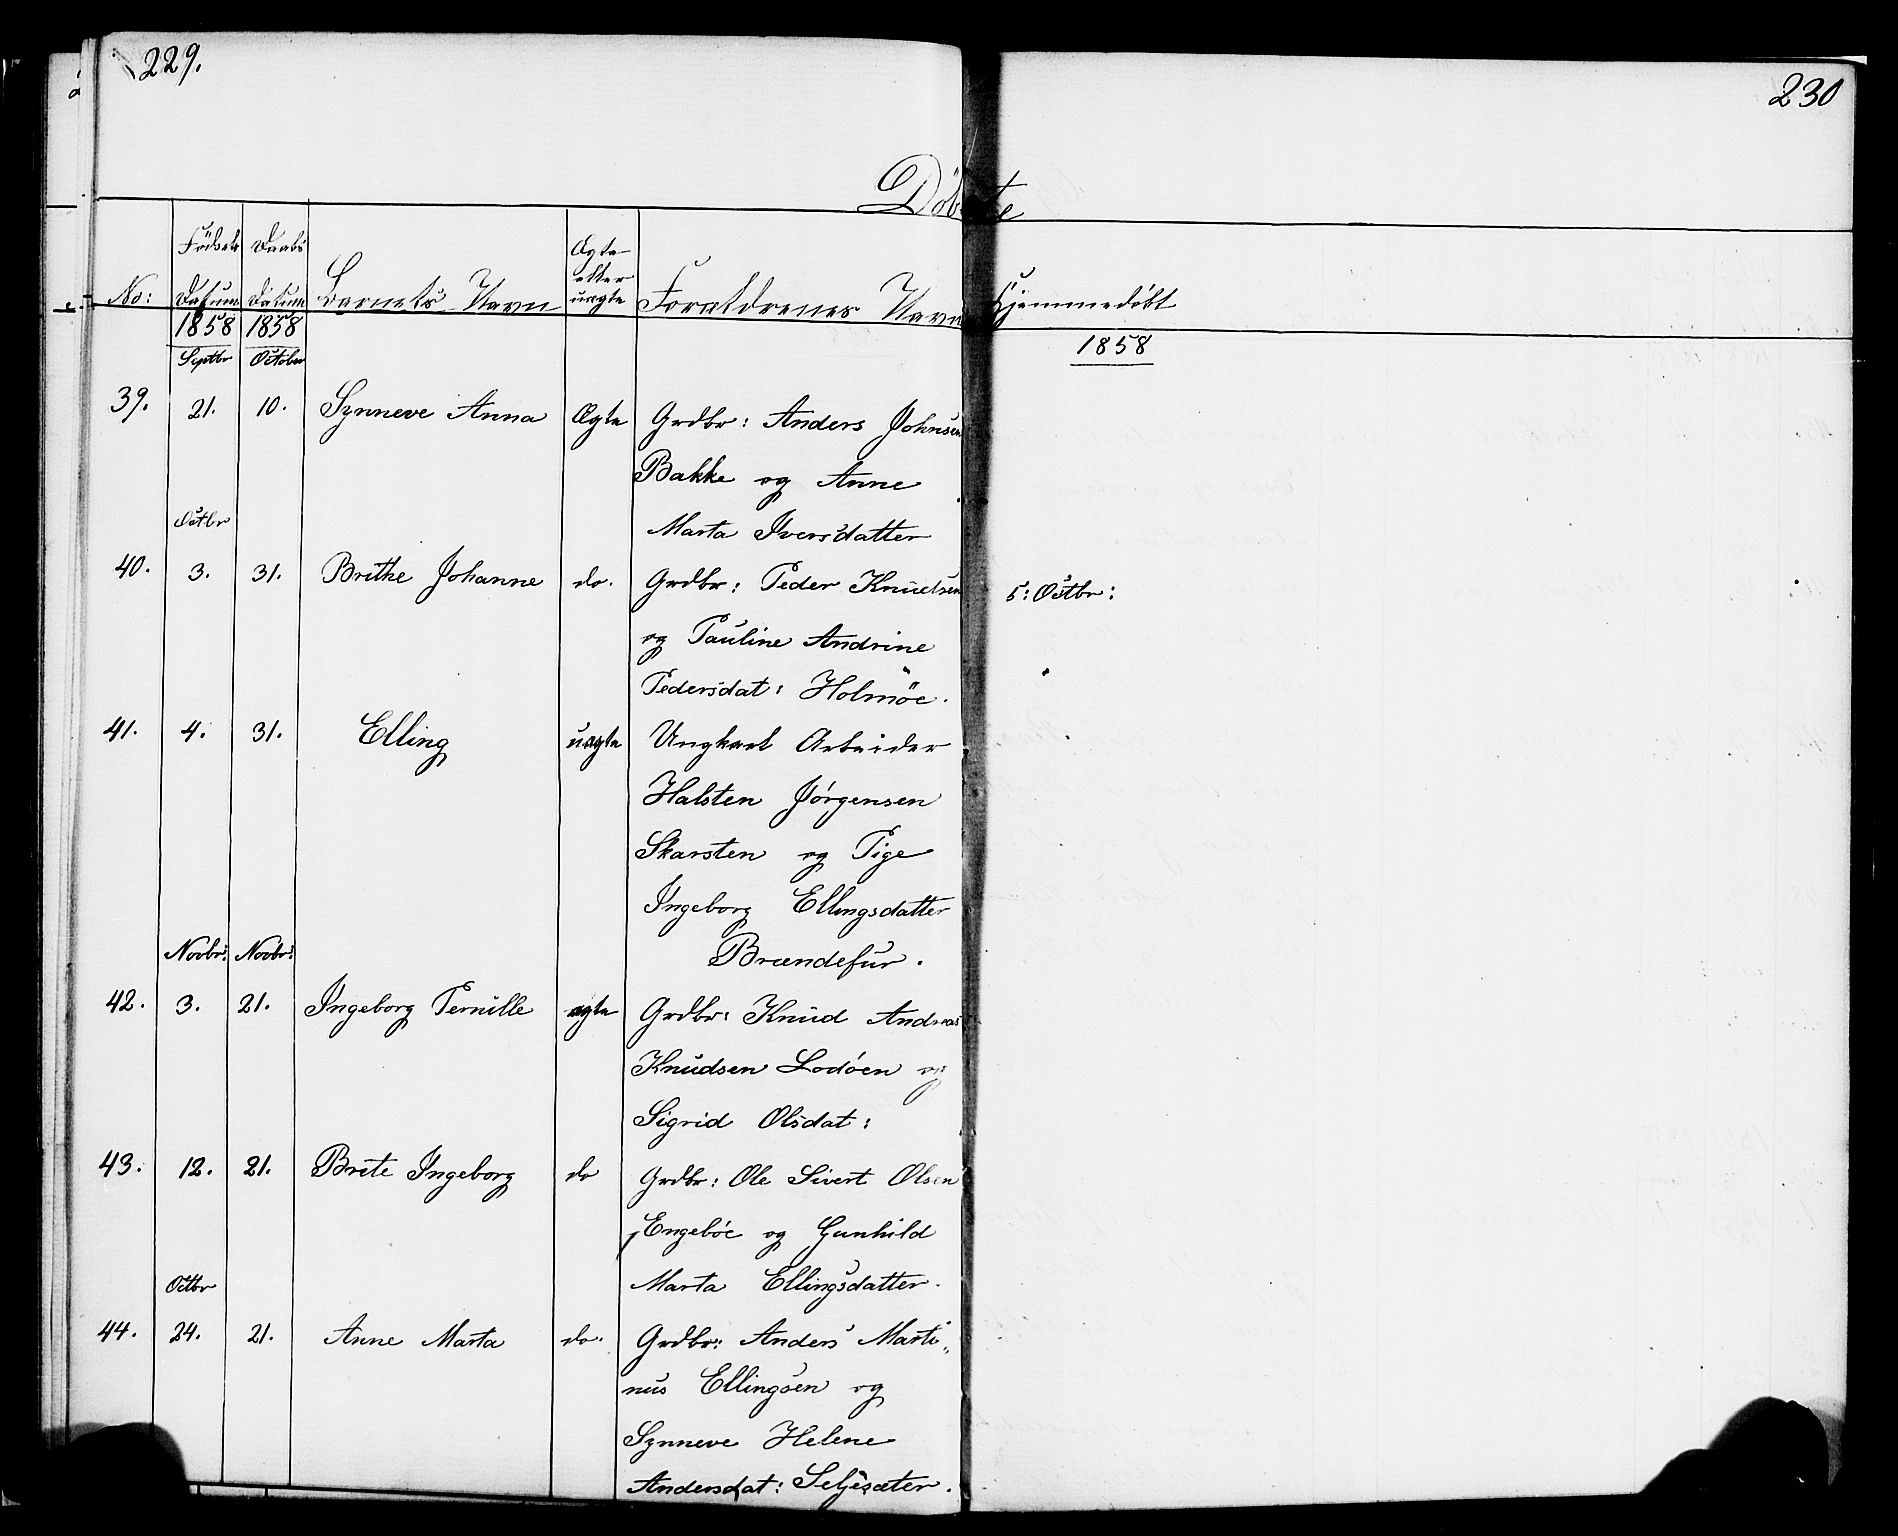 229.
230
Døbte
No:
Fødsels Datum
Daabs Datum
Barnets Navn
Ægte eller uægte
Forældrenes Navn
Hjemmedøbt
1858 1858
1858
Septbr October
39. 21. 10. Synneve Anna Ægte Grdbr: Anders Johnsen
Bakke og Anne
Marta Iversdatter
Octbr
40. 3. 31. Brithe Johanne do. Grdbr: Peder Knudsen 5: Octbr:
og Pauline Andrine
Pedersdat: Holmøe.
41. 4. 31. Elling uægte Ungkarl Arbeider
Halsten Jørgensen
Skarsten og Pige
Ingeborg Ellingsdatter
Brændefur.
Novbr: Novbr:
42. 3. 21. Ingeborg Pernille ægte Grdbr: Knud Andreas
Knudsen Lodøen og
Sigrid Olsdat:
43. 12. 21. Brite Ingeborg do Grdbr: Ole Sivert Olsen
Engebøe og Gunhild
Marta Ellingsdatter.
Octbr
44. 24. 21. Anne Marta do. Grdbr: Anders Marti„
nus Ellingsen og
Synneve Helene
Andersdat: Seljesæter.